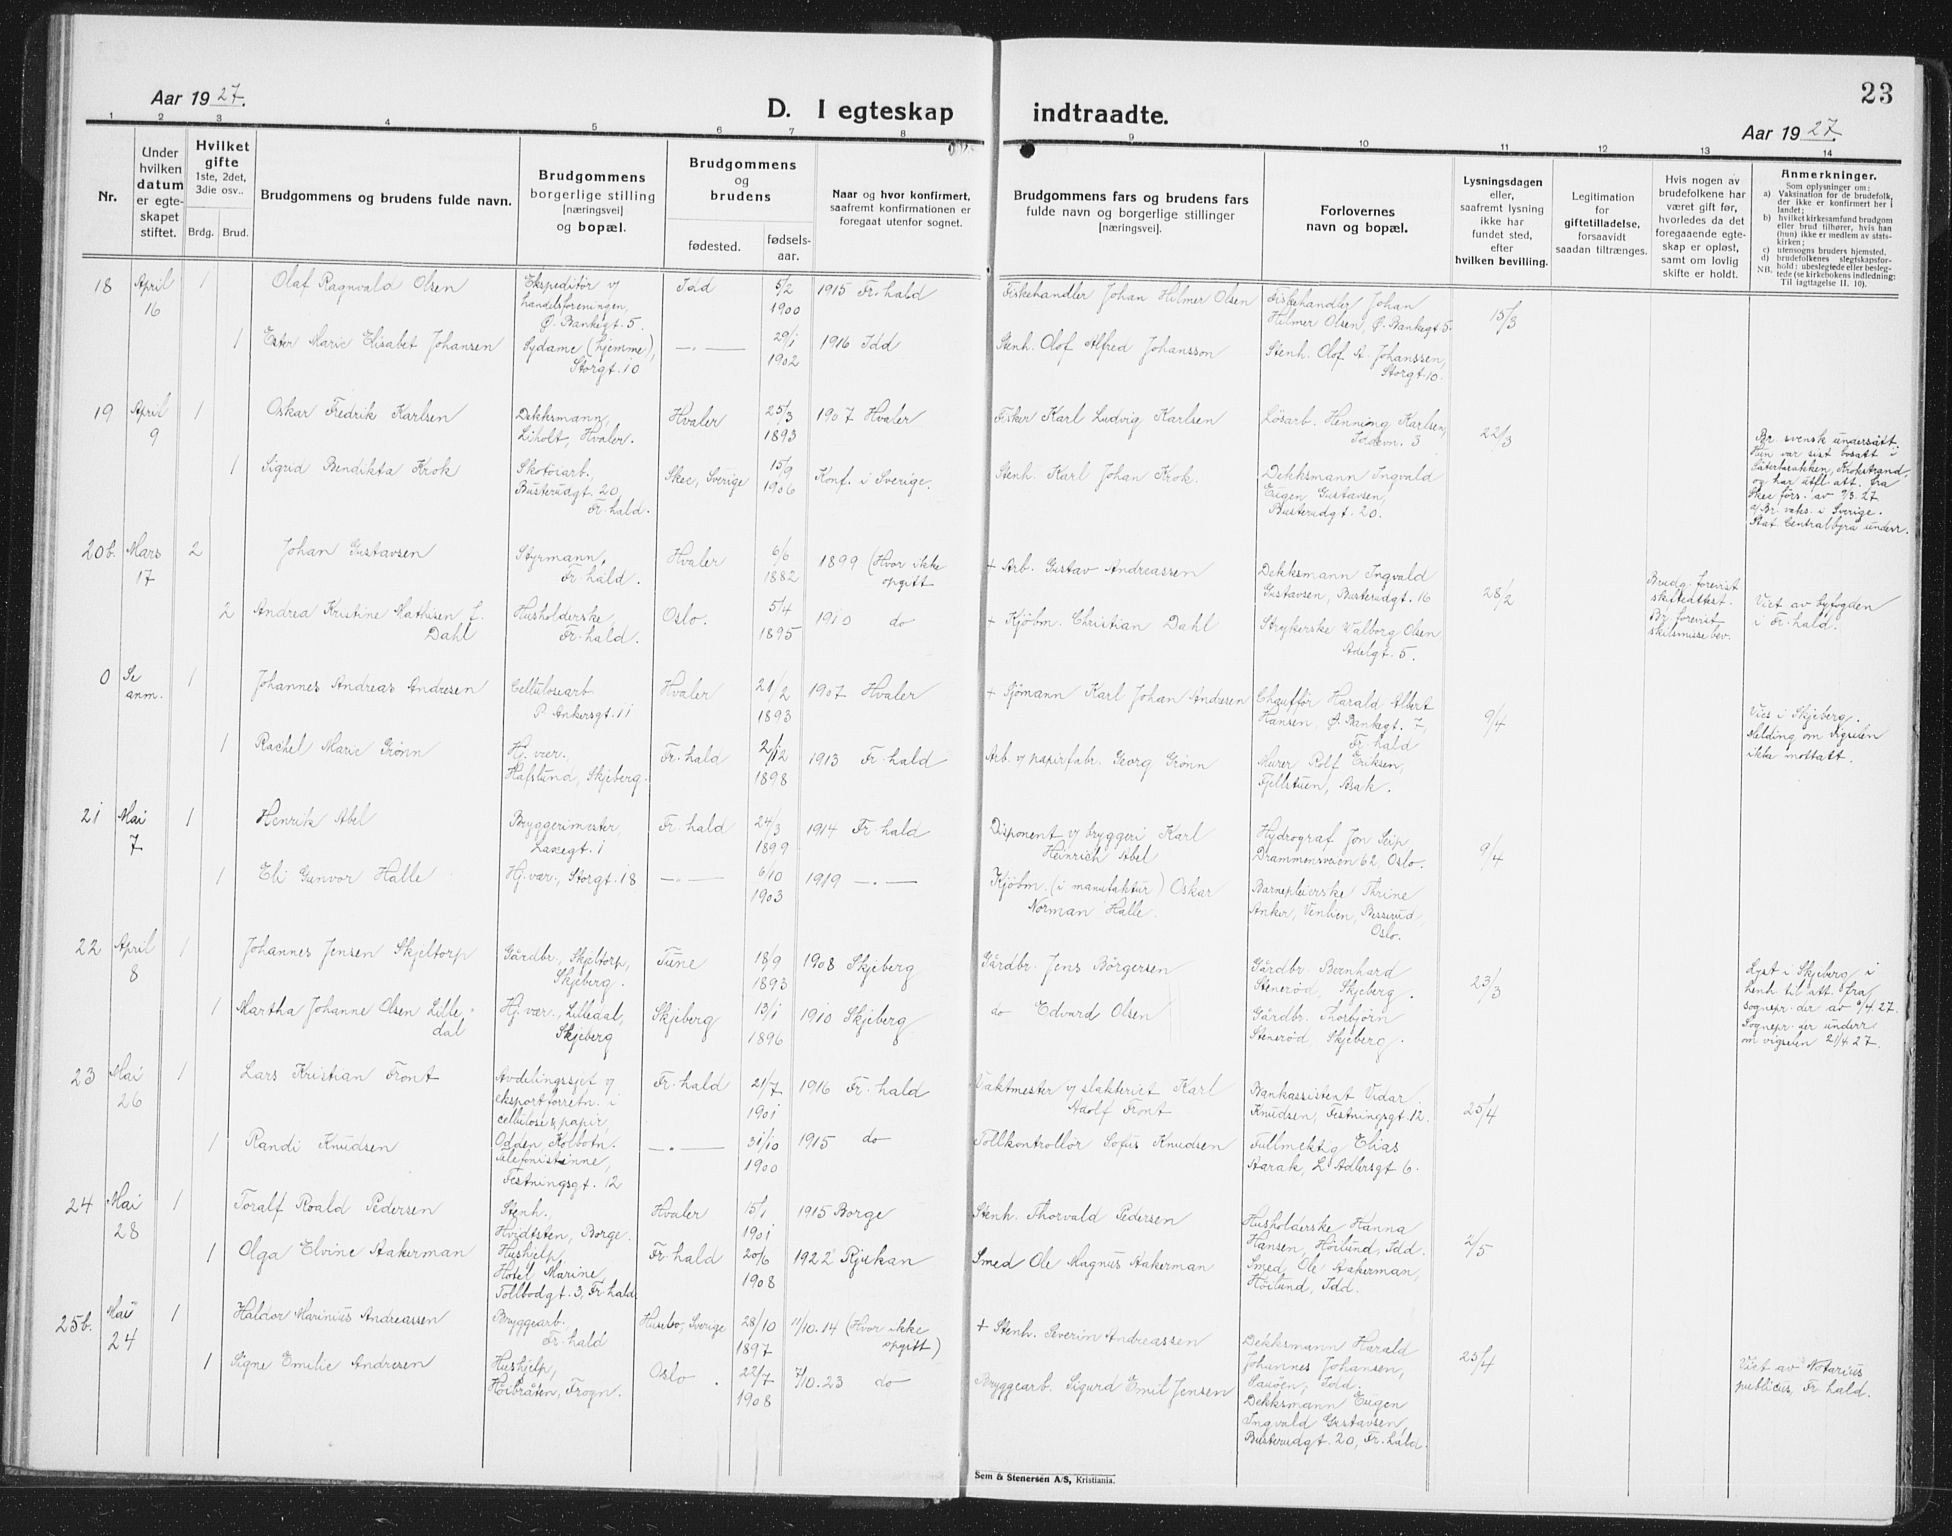 23
Aar 1927.
D. I egteskap indtraadte.
Aar 1927.
1 2 3 4 5 6 7 8 9 10 11 12 13 14
Nr.
Under hvilken datum er egte-skapet stiftet.
Hvilket gifte 1ste, 2det, 3die osv..
Brdg. Brud.
Brudgommens og brudens fulde navn.
Brudgommens borgerlige stilling [næringsvei] og bopæl.
Brudgommens og brudens
fødested.
fødsels-aar.
Naar og hvor konfirmert, saafremt konfirmationen er foregaat utenfor sognet.
Brudgommens fars og brudens fars fulde navn og borgerlige stillinger [næringsvei].
Forlovernes navn og bopæl.
Lysningsdagen eller, saafremt lysning ikke har fundet sted, efter hvilken bevilling.
Legitimation for giftetilladelse, forsaavidt saadan tiltrænges.
Hvis nogen av brudefolkene har været gift før, hvorledes da det foregaaende egte-skap er opløst, samt om lovlig skifte er holdt.
Anmerkninger.
Som oplysninger om:
a) Vaksination for de brudefolk, der ikke er konfirmert her i landet;
b) hvilket kirkesamfund brudgom eller brud tilhører, hvis han (hun) ikke er medlem av stats-kirken;
c) utensogns bruders hjemsted.
d) brudefolkenes slegtskapsfor-hold: ubeslegtede eller besleg-tede (se kirkebokens indledning: NB. Til iagttagelse II. 10).
18 April 16 1 Olaf Ragnvald Olsen Ekspeditör v/ handelsforeningen, Ø. Bankegt. 5. Idd 5/2 1900 1915 Fr.hald Fiskehandler Johan Hilmer Olsen Fiskehandler Johan Hilmer Olsen, Ø. Bankegt 5. 15/3
1 Ester Marie Elisabet Johansen Sydame (hjemme), Storgt. 10 —„— 29/1 1902 1916 Idd Stenh. Olof Alfred Johansson Stenh. Olof A. Johanssen, Storgt 10.
19 April 9 1 Oskar Fredrik Karlsen Dekksmann, Liholt, Hvaler. Hvaler 25/3 1893 1907 Hvaler Fisker Karl Ludvig Karlsen Lösarb. Henning Karlsen, Iddevn. 3 22/3
1 Sigrid Bendikta Krok Skotöiarb. Busterudgt. 20 Fr.hald. Skee, Sverige 15/9 1906 Konf. i Sverige. Stenh. Karl Johan Krok. Dekksmann Ingvald Eugen Gustavsen, Busterudgt. 20. Br. svensk undersått. Hun var sist bosatt i Krokstrand, og har utfl. att. fra Skee förs. av 9/3 27 a/Br. vaks. i Sverige. Stat. Centralbyrå underr.
20b. Mars 17 2 Johan Gustavsen Styrmann, Fr.hald. Hvaler 6/6 1882 1899 (Hvor ikke opgitt + Arb. Gustav Andreassen Dekksmann Ingvald Gustavsen, Busterudgt. 16 28/2 Brudg. forevist skifteattest. Viet av byfogden i Fr.hald.
2 Andrea Kristine Mathisen f. Dahl Husholderske, Fr.hald. Oslo. 5/4 1895 1910 do + Kjöbm. Christian Dahl Strykerske Valborg Olsen Adelgt. 5. Br. forevist skilsmisse bev.
0 Se anm. 1 Johannes Andreas Andresen Cellulosearb. P. Ankersgt. 11 Hvaler 21/2 1893 1907 Hvaler + Sjömann Karl Johan Andresen Chaufför Harald Albert Hansen, Ø. Bankegt. 7, Fr.hald 9/4 Vies i Skjeberg. Melding om vigselen ikke mottatt.
1 Rachel Marie Grönn Hj. vær. Hafslund, Skjeberg. Fr.hald 2/12 1898 1913 Fr.hald Arb. v/ papirfabr. Georg Grönn Murer Rolf Eriksen, Fjellstuen, Asak.
21 Mai 7 1 Henrik Abel Bryggerimester, Laxegt. 1 Fr.hald 24/3 1899 1914 Fr.hald Disponent v/ bryggeri Karl Heinrich Abel Hydrograf Jon Seip Drammensveien 62 Oslo. 9/4
1 Eli Gunvor Halle Hj. vær., Storgt. 18 —„— 6/10 1903 1919 —„— Kjöbm. (i manufaktur) Oskar Norman Halle. Barnepleierske Thrine Anker, Besserud, Oslo.
22 April 8 1 Johannes Jensen Skjeltorp Gårdbr., Skjeltorp, Skjeberg. Tune 18/9 1893 1908 Skjeberg Gårdbr. Jens Börgersen Gårdbr. Bernhard Stenerød, Skjeberg. 23/3 Lyst i Skjeberg i henh. til att. fra sognepr. der av 6/4 27. Sognepr. der underr. om vigselen 21/4 27.
1 Martha Johanne Olsen Lilledal Hj. vær., Lilledal, Skjeberg Skjeberg 13/1 1896 1910 Skjeberg do Edvard Olsen Gårdbr. Thorbjörn Stenerød Skjeberg.
23 Mai 26 1 Lars Kristian Front Avdelingssjef v/ eksportforretn. i cellulose & papir, Odden Kolbotn. Fr.hald 21/7 1901 1916 Fr.hald Vaktmester v/ slakteriet Karl Adolf Front Bankassistent Vidar Knudsen, Festningsgt. 12. 25/4
1 Randi Knudsen Telefonistinne, Festningsgt. 12 —„— 31/10 1900 1915 do Tollkontrollör Sofus Knudsen Fullmektig Elias Aarak, L. Adlersgt 6.
24 Mai 28 1 Toralf Roald Pedersen Stenh., Hvidtsten, Borge. Hvaler 15/1 1901 1915 Borge Stenh. Thorvald Pedersen Husholderske Hanna Hansen, Höilund, Idd. 2/5
1 Olga Elvine Aakerman Hushjelp, Hotel Marine, Tollbodgt. 3, Fr.hald Fr.hald 20/6 1908 1922 Rjukan Smed Ole Magnus Aakerman Smed, Ole Aakerman, Höilund, Idd.
25b. Mai 24 1 Haldor Marinius Andreassen Bryggearb. Fr.hald Husebo, Sverige 28/10 1897 11/10.14 (Hvor ikke opgitt) + Stenh. Severin Andreassen Dekksmann Harald Johannes Johansen, Sauöen, Idd. 23/4 Viet av Notarius publicus, Fr.hald.
1 Signe Emilie Andresen Hushjelp, Höibråten, Frogn. Oslo. 22/7 1908 7/10.23 do Bryggearb. Sigurd Emil Jensen Dekksmann Eugen Ingvald Gustavsen, Busterudgt. 20, Fr.hald.
Sem & Stenersen A/S, Kristiania.